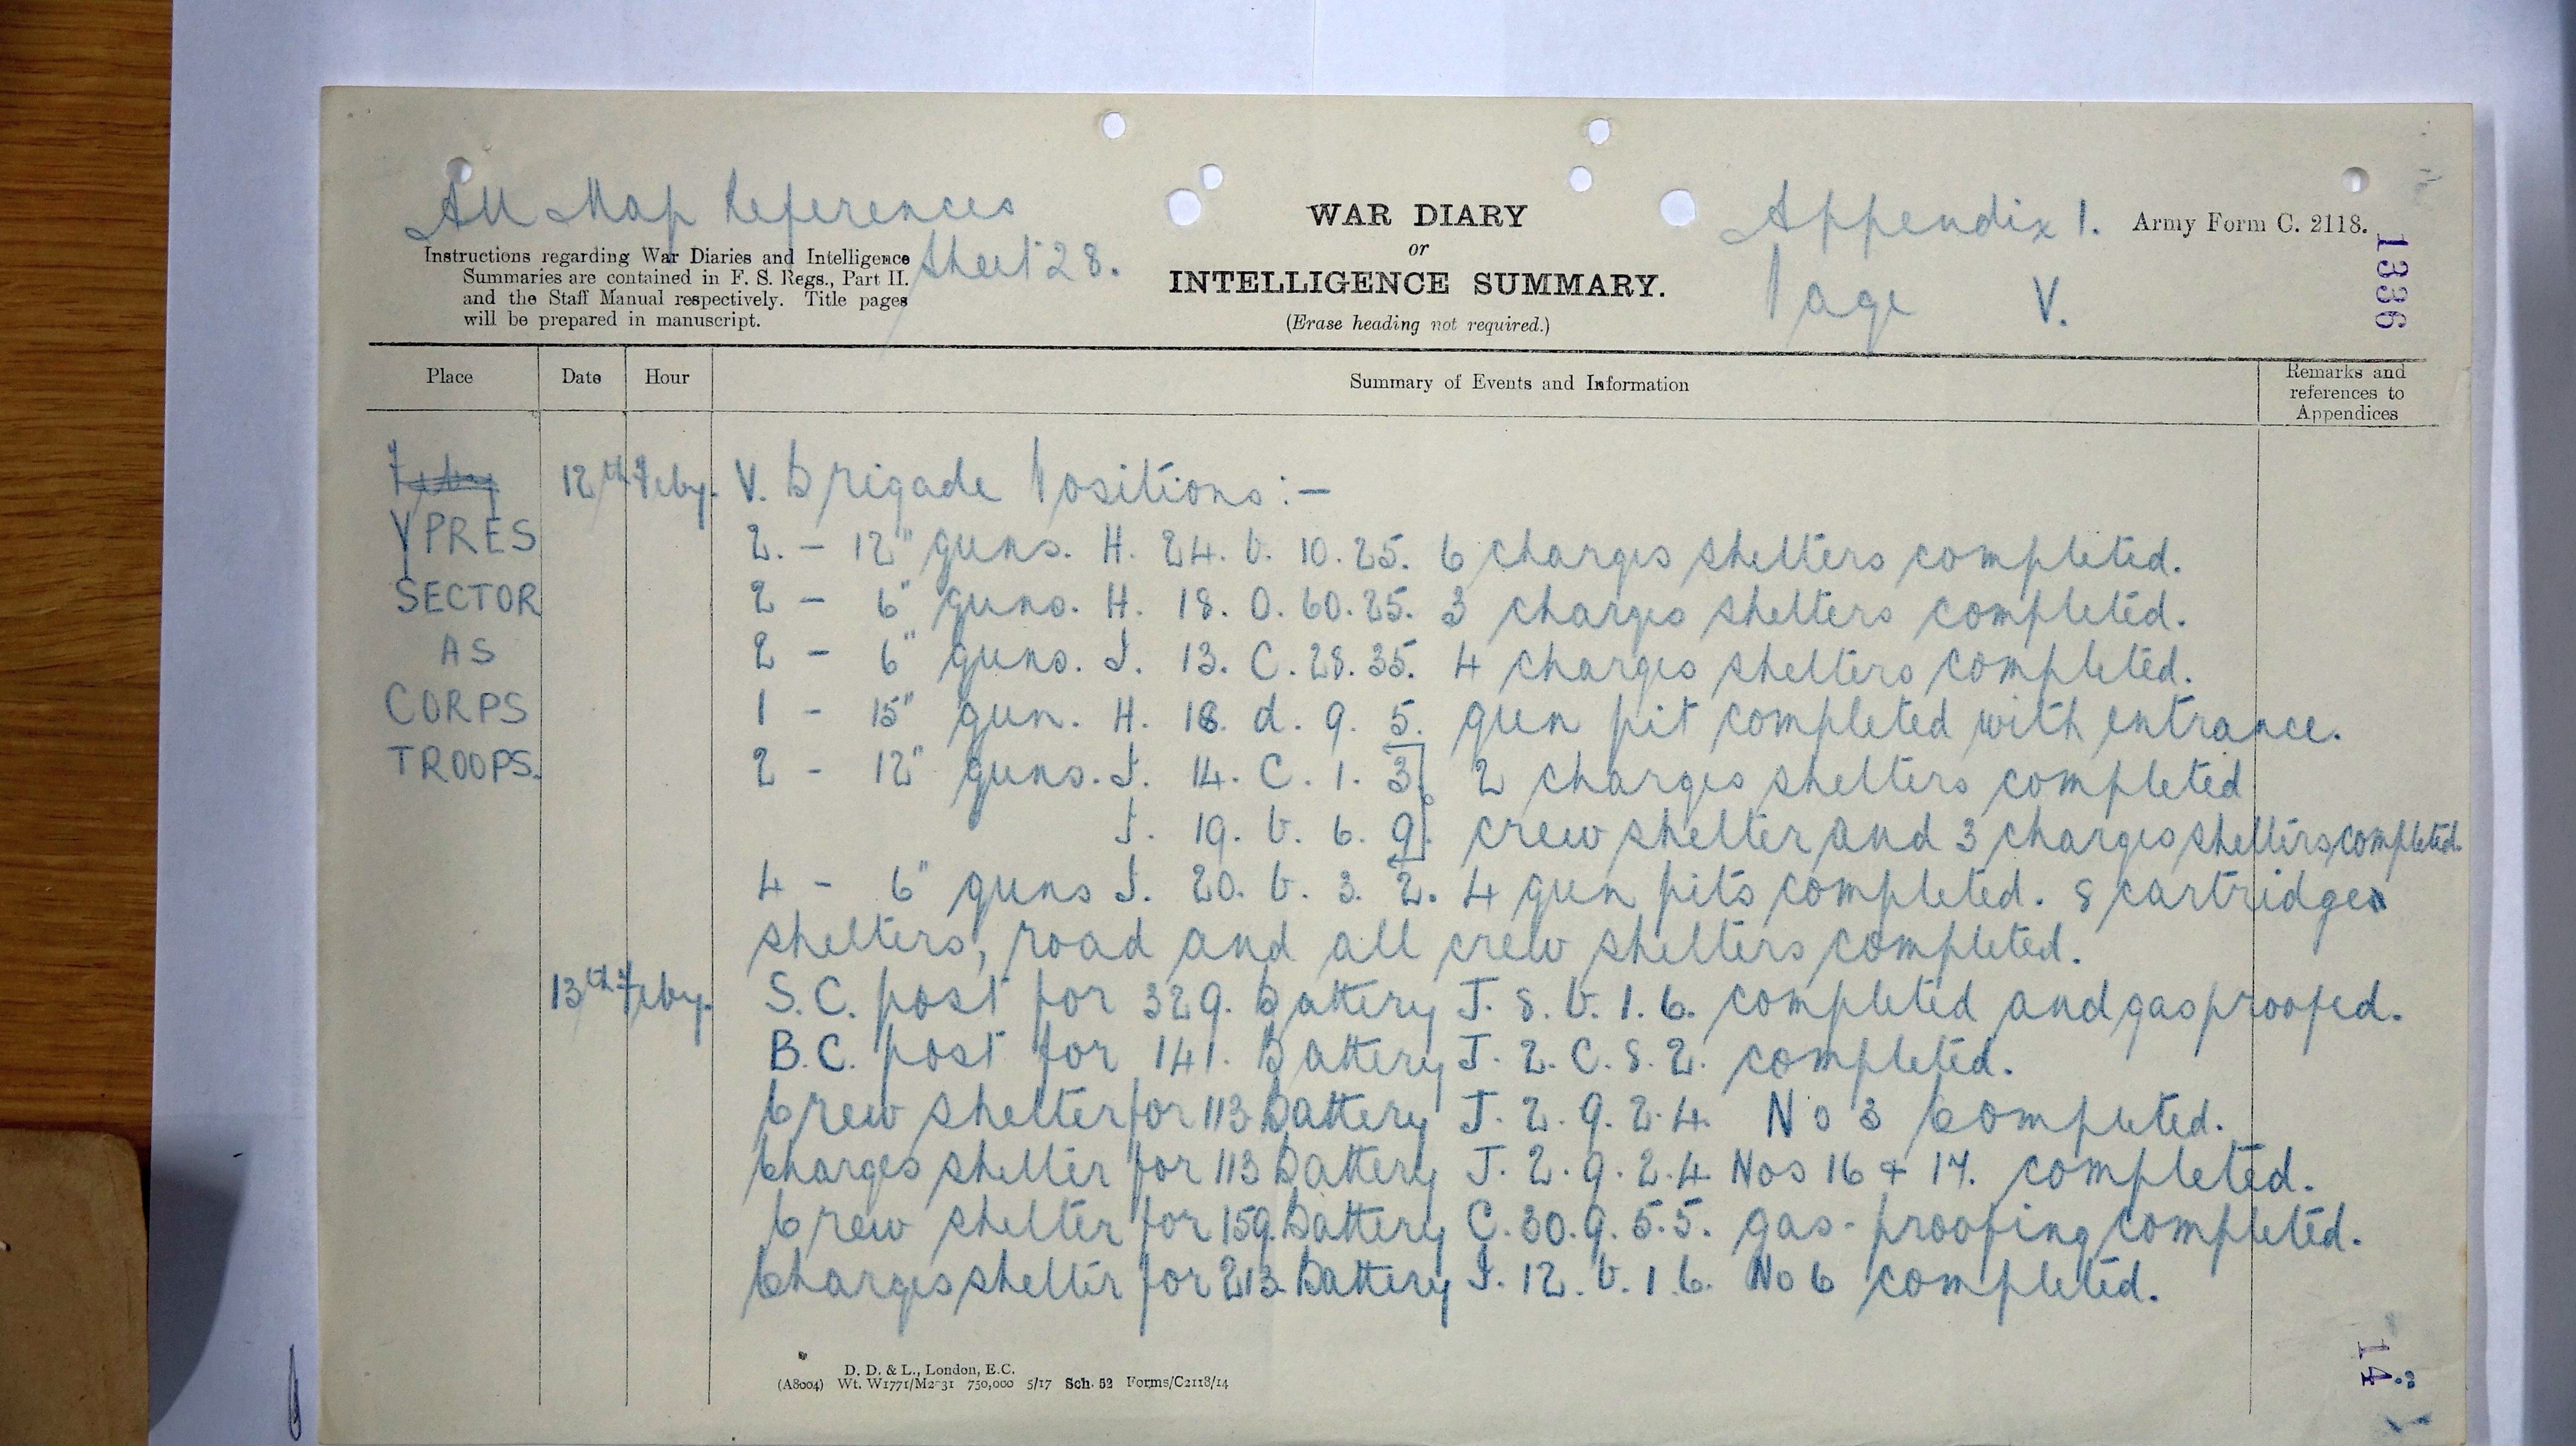 All Map References
Sheet 28.
Instructions regarding War Diaries and Intelligence
Summaries are contained in F. S. Regs., Part II.
and the Staff Manual respectively. Title pages
will be prepared in manuscript.
WAR DIARY
or
INTELLIGENCE SUMMARY.
(Erase heading not required.)
Appendix 1.
Page V.
Army Form C. 2118.
1336
Place Date Hour Summary of Events and Information Remarks and references to Appendices
YPRES
SECTOR
AS
CORPS
TROOPS.
12th Feby. V. Brigade Positions :-
2. - 12" guns. H. 24. b. 10. 25. 6 charges shelters completed.
2 - 6" guns. H. 18. O. 60. 25. 3 charges shelters completed.
2 - 6" guns. J. 13. C. 28. 35. 4 charges shelters completed.
1 - 15" gun. H. 18. d. 9. 5. gun pit completed with entrance.
2 - 12" guns. J. 14. C. 1. 3. 2 charges shelters completed
J. 19. b. 6. 9. crew shelter and 3 charges shelters completed.
4 - 6" guns J. 20. b. 3. 2. 4 gun pits completed. 8 cartridges
shelters, road and all crew shelters completed.
13th Feby. S.C. post for 329. Battery J. 8. b. 1. 6. completed and gasproofed.
B.C. post for 141. Battery J. 2. C. 8. 2. completed.
Crew shelter for 113 Battery J. 2. 9. 2. 4. No 3 Completed.
Charges shelter for 113 Battery J. 2. 9. 2. 4 Nos 16 & 17. completed.
Crew shelter for 159. Battery C. 30. 9. 5. 5. gas-proofing completed.
Charges shelter for 213. Battery J. 12. b. 1. 6. No 6 completed.
D. D. & L., London, E.C.
(A8004) Wt. W1771/M2031 750,000 5/17 Sch. 52 Forms/C2118/14
14